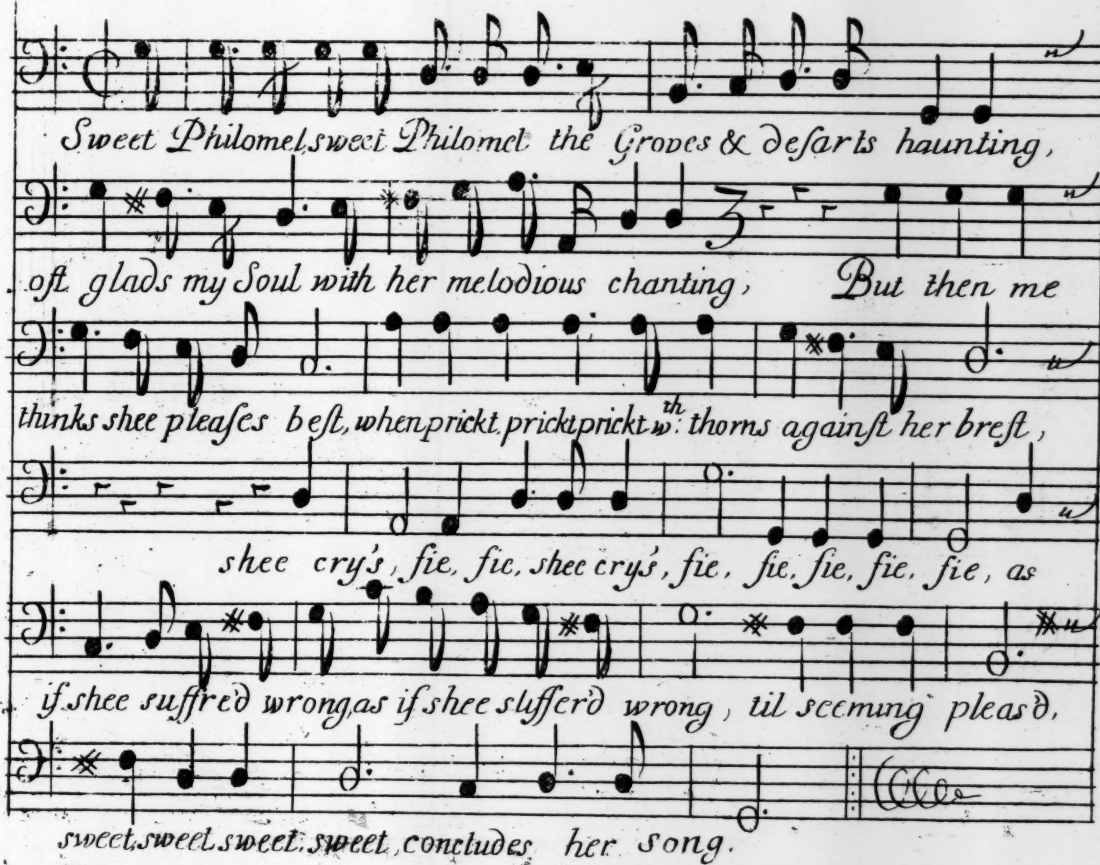 Sweet Philomel, sweet Philomel the Groves & deſarts haunting,
oft glads my Soul with her melodious chanting, But then me
thinks shee pleaſes beſt, when prickt, prickt prickt wth: thorns againſt her breſt,
shee cry's, fie, fie, shee cry's, fie, fie, fie, fie, fie, as
if shee suffre'd wrong, as if shee sufferd wrong, til seeming pleasd,
sweet, sweet, sweet, sweet, concludes her song.